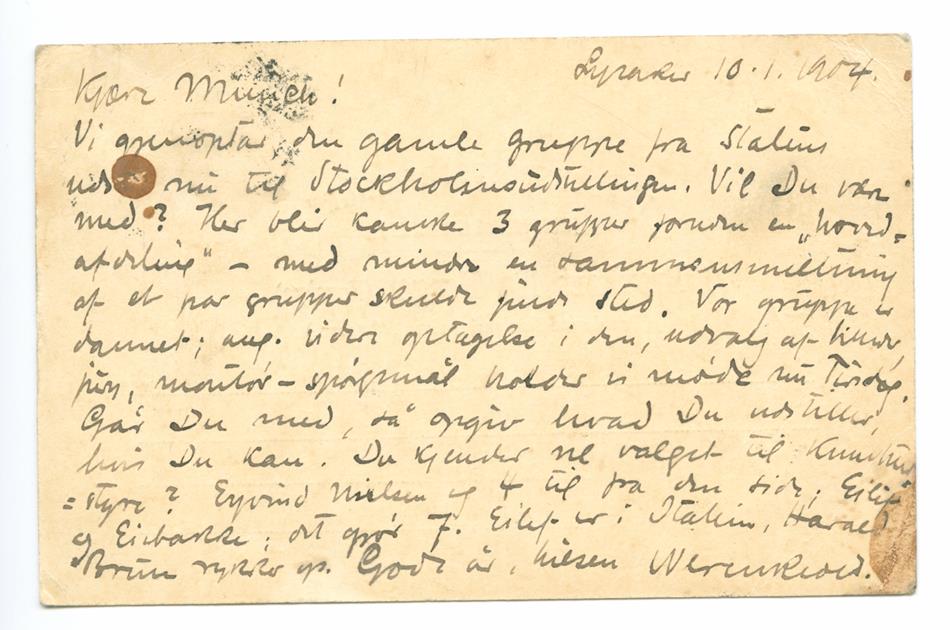 Lysaker 10.1.1904.
Kjære Munch!
Vi gjenoptar den gamle gruppe fra Statens
nu til Stockholmsudstillingen. Vil Du være
med? Her blir kanske 3 grupper foruden en „hoved-
afdeling" – med mindre en sammensmeltning
af et par grupper skulde finde sted. Vor gruppe er
dannet; ang. videre optagelse i den, udvalg af billeder,
jury, montör-spørgsmål holder vi møde nu Tirsdag.
Går Du med, så opgiv hvad Du udstiller,
hvis Du kan. Du kjender vel valget til Kunstner
=styre? Eyvind Nielsen og 4 til fra den side; Eilif
og Eiebakke; det gjør 7. Eilif er i Italien, Harald
Brun rykker op. Godt år, hilsen Werenskiold.